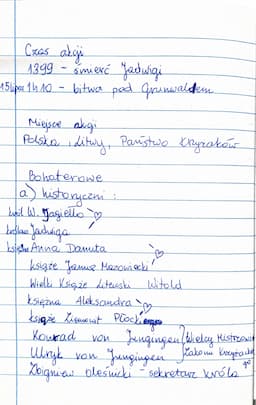 Czas akcji
1399 - śmierć Jadwigi
15 lipca 1410 - bitwa pod Grunwaldem
Miejsce akcji
Polska, Litwy, Państwo Krzyżaków
Bohaterowe
a) historyczni:
król W. Jagiełło
królowa Jadwiga
księżna Anna Danuta
książę Janusz Mazowiecki
Wielki Książę Litewski Witold
księżna Aleksandra
książę Ziemowit Płock
Konrad von Jungingen } Wielcy Mistrzowie
Ulryk von Jungingen } Zakonu
Zbigniew oleśnicki - sekretarz króla